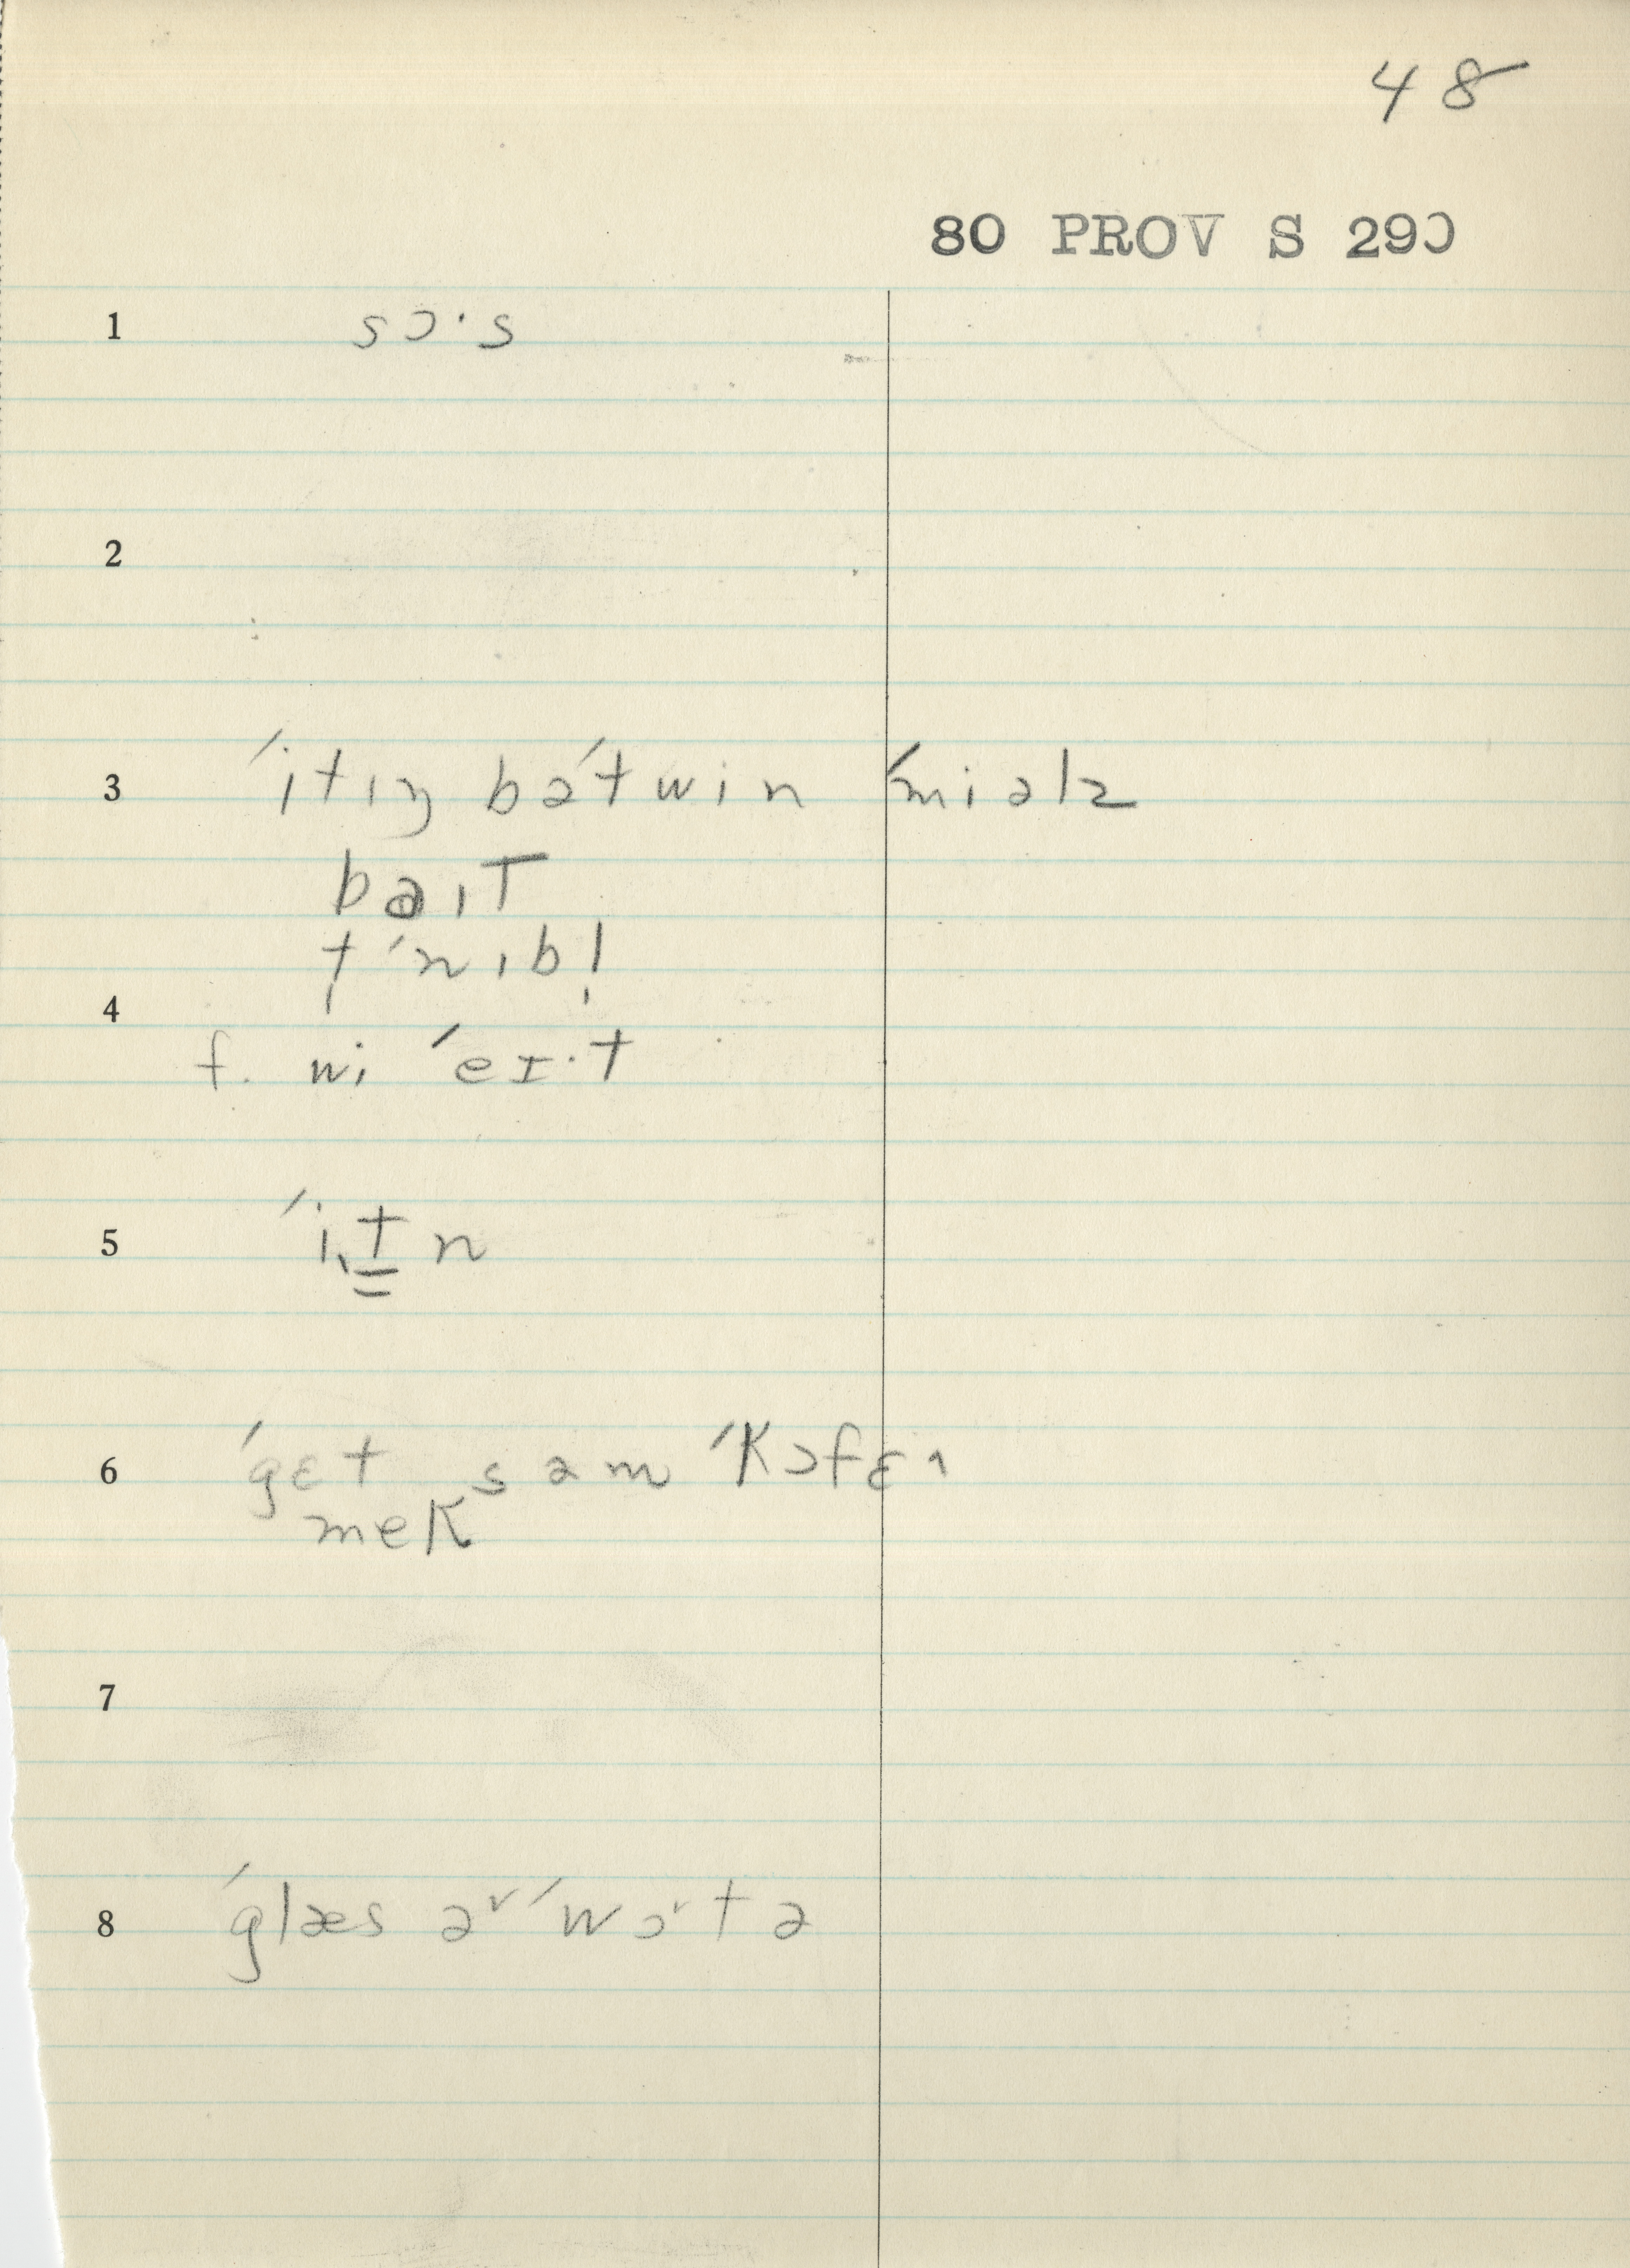 48
80 PROV S 290
1 sɔ·s
2
3 ˊitɪŋ bəˊtwin ˊmiəlz
baɪT
tˊnɪbl̩
4
f. wi ˊeɪ·t
5 ˊit̳n
6 ˊgɛt səm ˊKɔfɛ˄
meK
7
8 ˊglæs ə˅ ˊwɔ˅tə